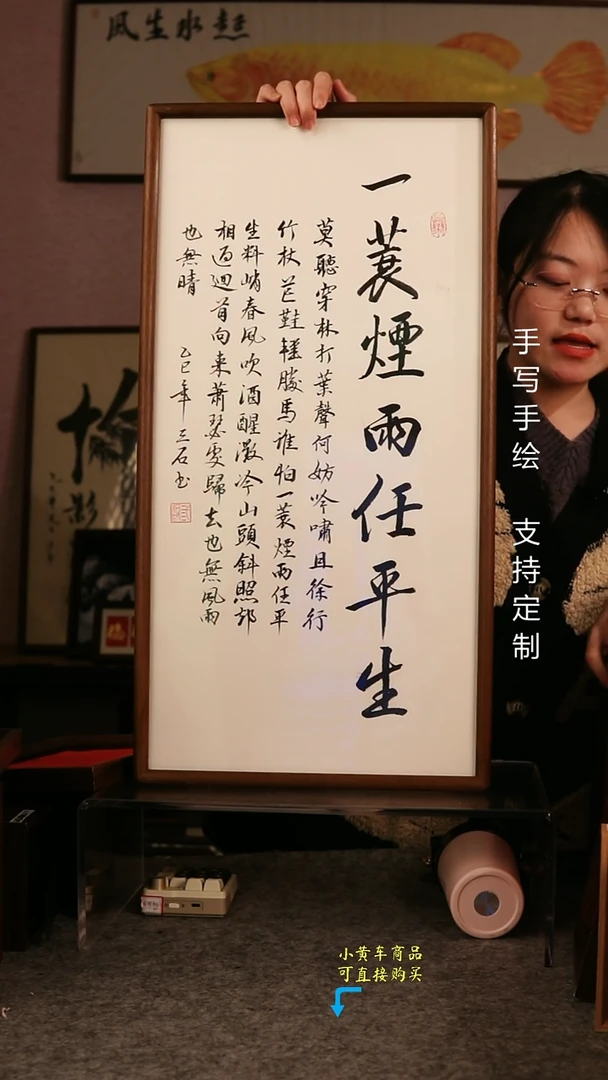 風生水起
一蓑煙雨任平生
莫聽穿林打葉聲何妨吟嘯且徐行
竹杖芒鞋輕勝馬誰怕一蓑煙雨任平
生料峭春風吹酒醒微冷山頭斜照却
相迎迴首向來蕭瑟處歸去也無風雨
也無晴
乙巳年三石书
手写手绘 支持定制
福
小黄车商品
可直接购买